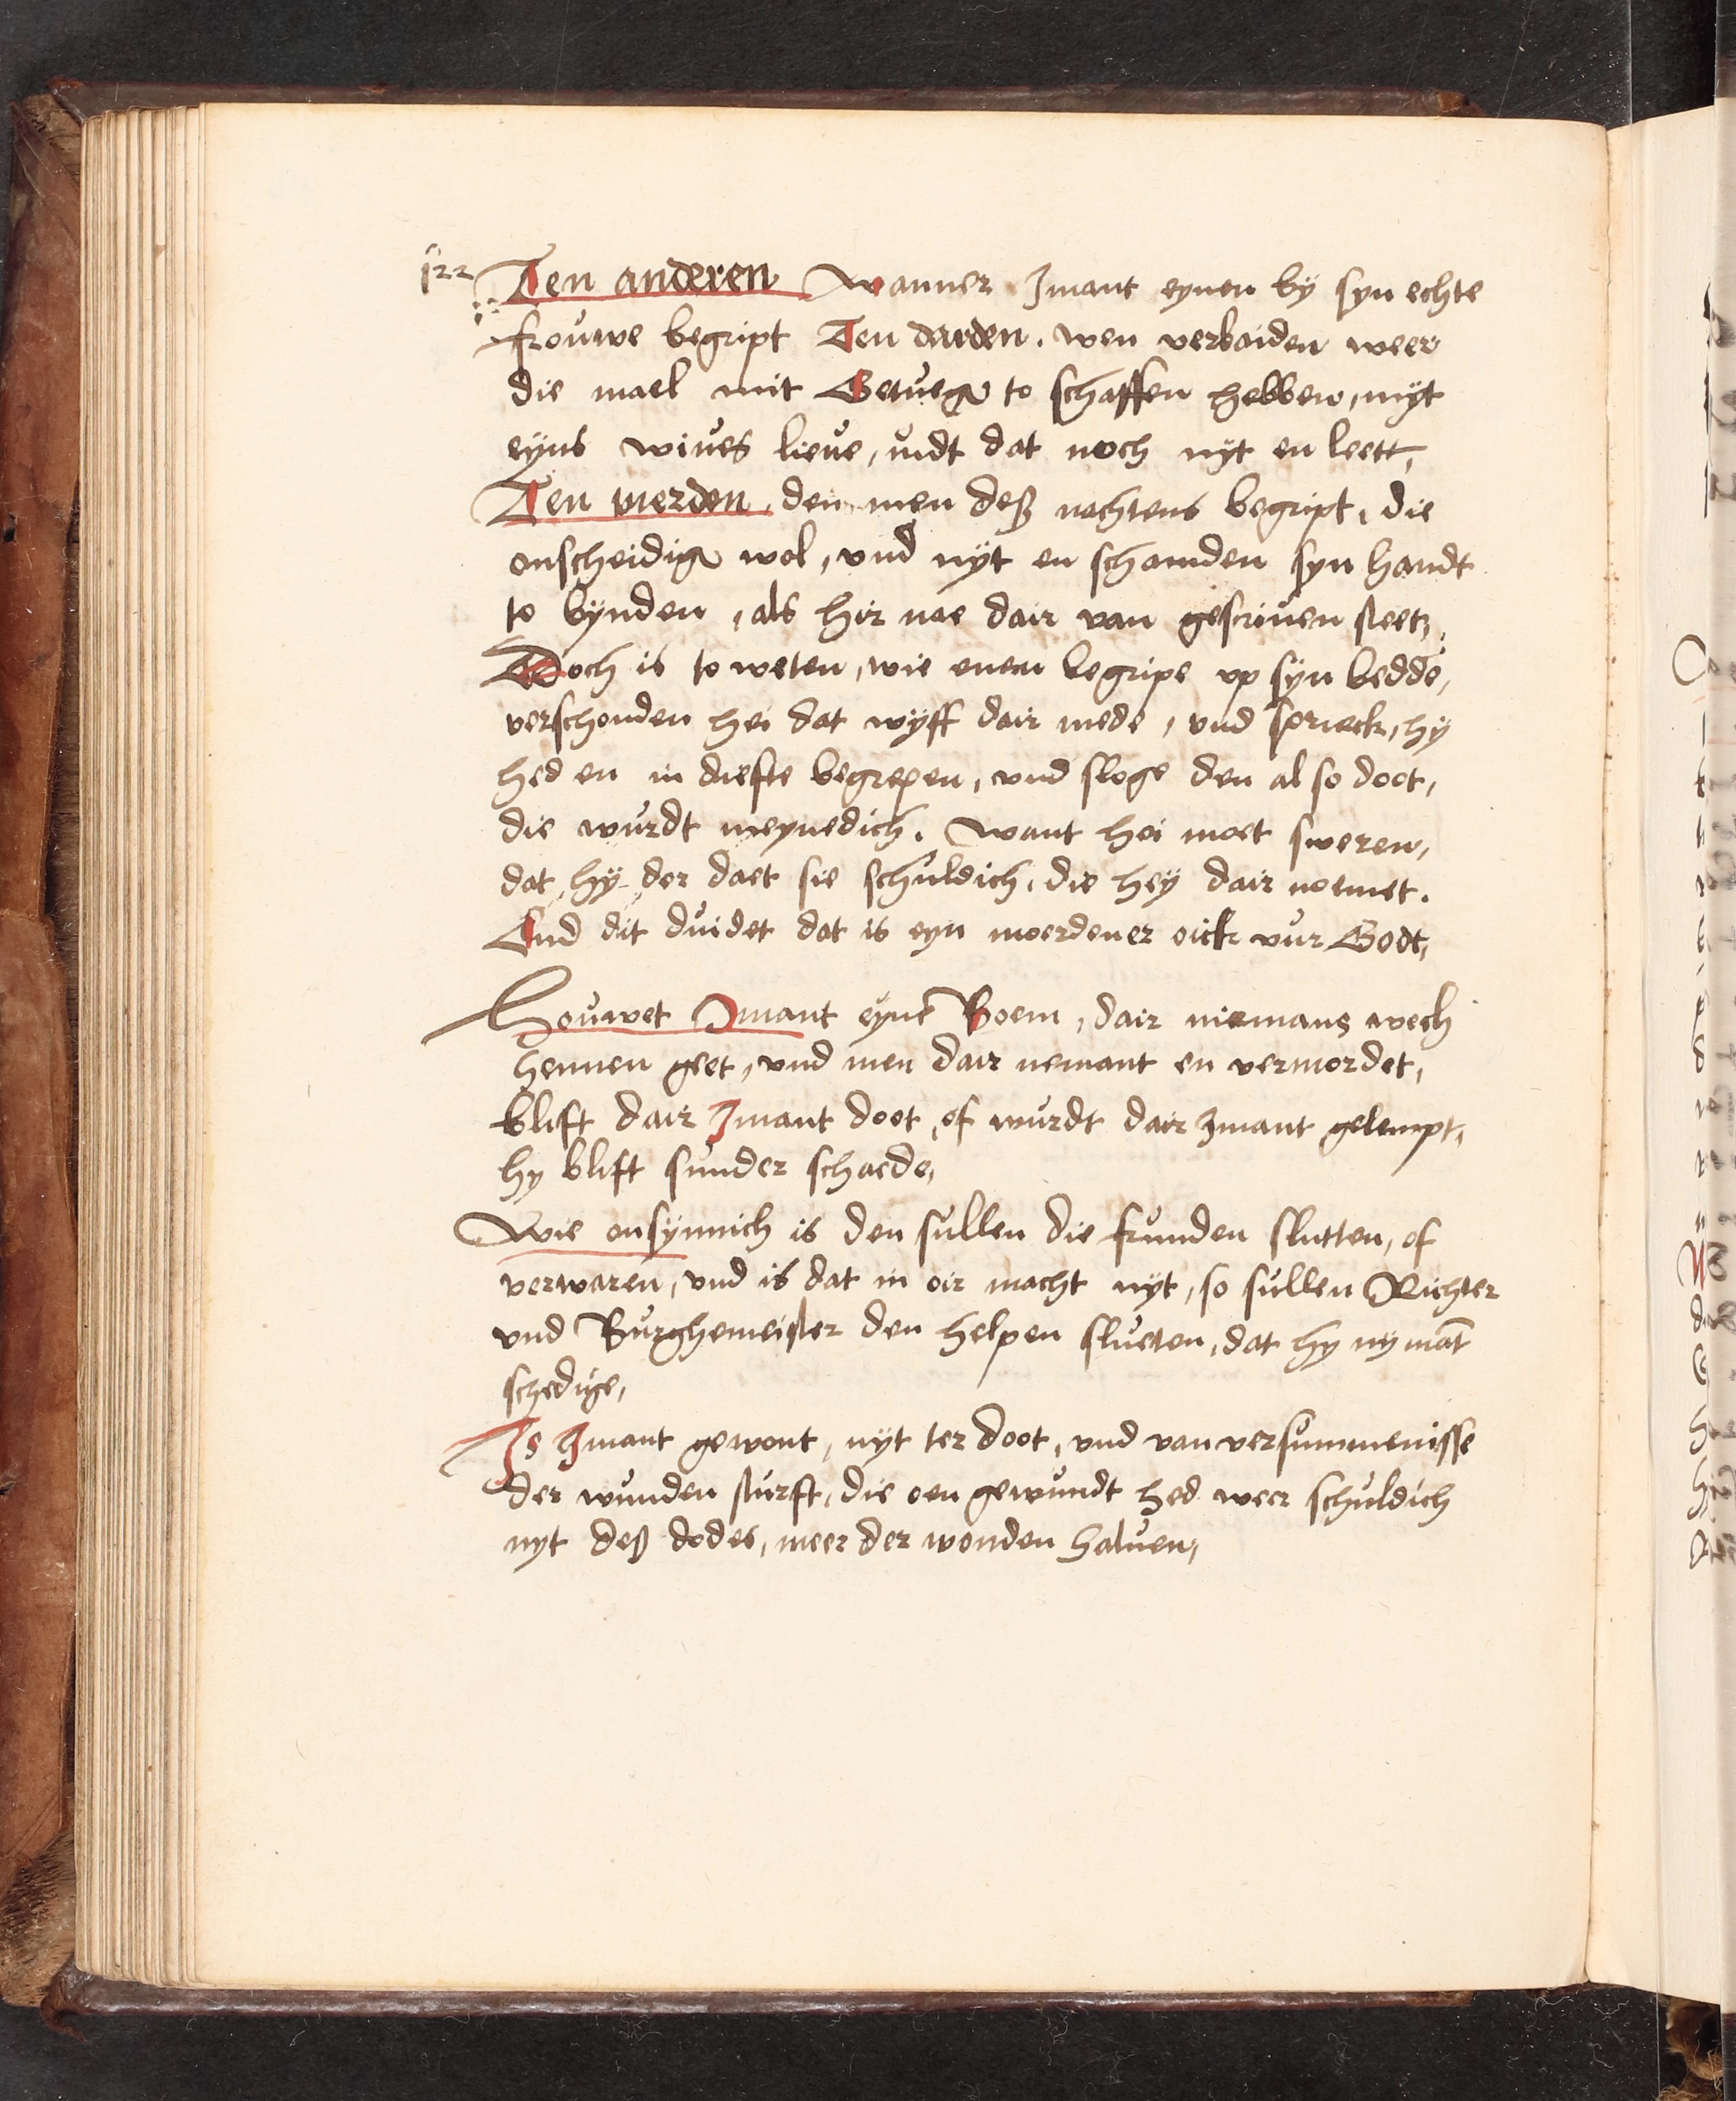 122 Ten anderen Wanner Imant eynen by syn echte
frouwe begript Ten darden. wen verbaiden weer
die mael mit Getueg to schaffen hebben, nyt
eyns wives lieve, undt dat noch nyt en leett,
Ten vierden, den men deß nachtens begript, die
onscheidig wol, und nyt en schamden syn handt
to bynden, als hir nae dair van gescriven steet,
Doch is to weten, wie enen begripe up syn bedde,
verschonden hei dat wyff dair mede, und sprieck, hy
hed en in diefte begrepen, und sloge den also doot,
die wurdt meynedich. Want hei moet sweren,
dat hy der daet sie schuldich, die hey dair noemet.
Und dit duidet dat is eyn moerdener oick vur Godt,
Houwet Imant eyne Boem, dair niemans wech
hennen geet, und men dair nemant en vermordet,
blift dair Imant doot, of wurdt dair Imant gelempt,
hy blift sunder schaede,
Wie onsynnich is den sullen die frunden slutten, of
verwaren, und is dat in oir macht nyt, so sullen Richter
und Burghemeister den helpen slueten, dat hy nymat
schedige,
Is Imant gewont, nyt ter doot, und van versummenisse
der wunden sturft, die oen gewundt hed weer schuldich
nyt deß dodes, meer der wonden halven,